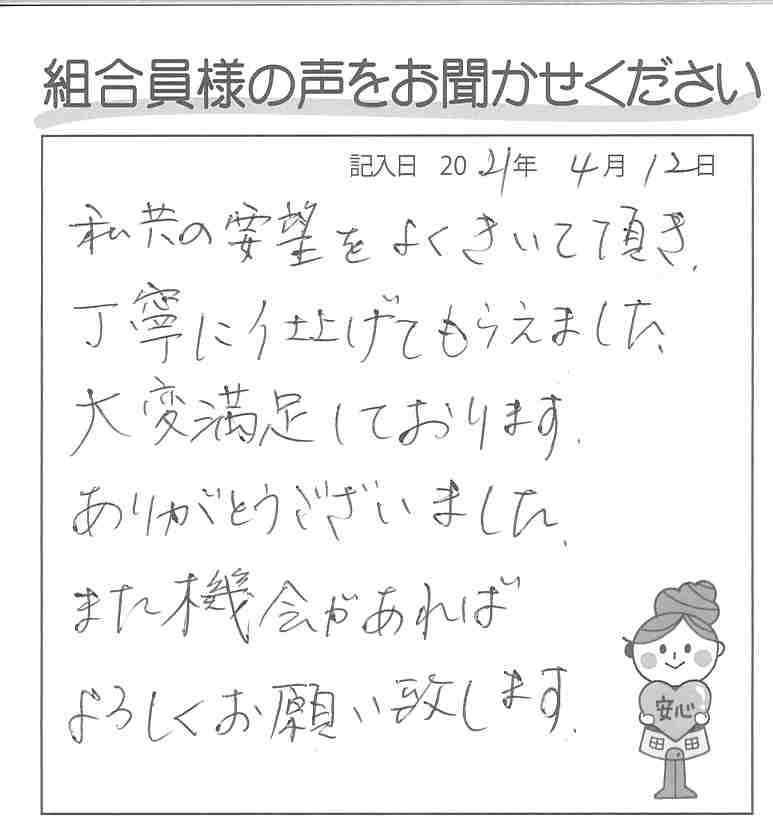 組合員様の声をお聞かせください
記入日 2021年 4月 12日
私共の要望をよくきいて頂き、
丁寧に仕上げてもらえました。
大変満足しております。
ありがとうございました。
また機会があれば
よろしくお願い致します。
安心